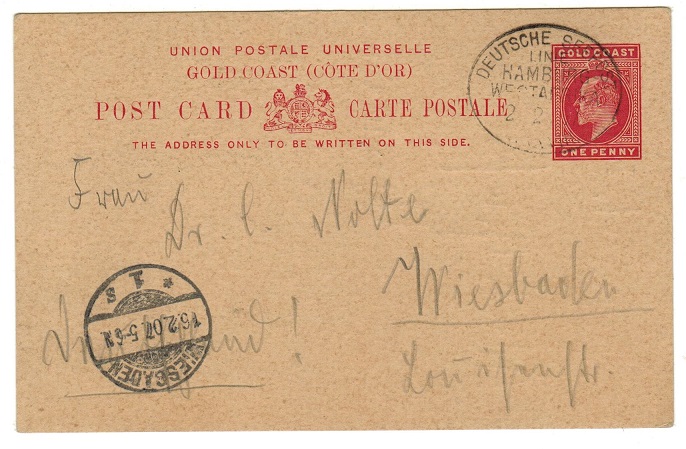 UNION POSTALE UNIVERSELLE
GOLD COAST (CÔTE D'OR)
POST CARD CARTE POSTALE
THE ADDRESS ONLY TO BE WRITTEN ON THIS SIDE.
DEUTSCHE
LIN
HAMB
WESTA
2 2
GOLD COAST
ONE PENNY
Frau
Dr. C. Nolte
Wiesbaden
Louisenstr.
Deutschland!
* 1 s
16.2.07.5-6N
WIESBADEN